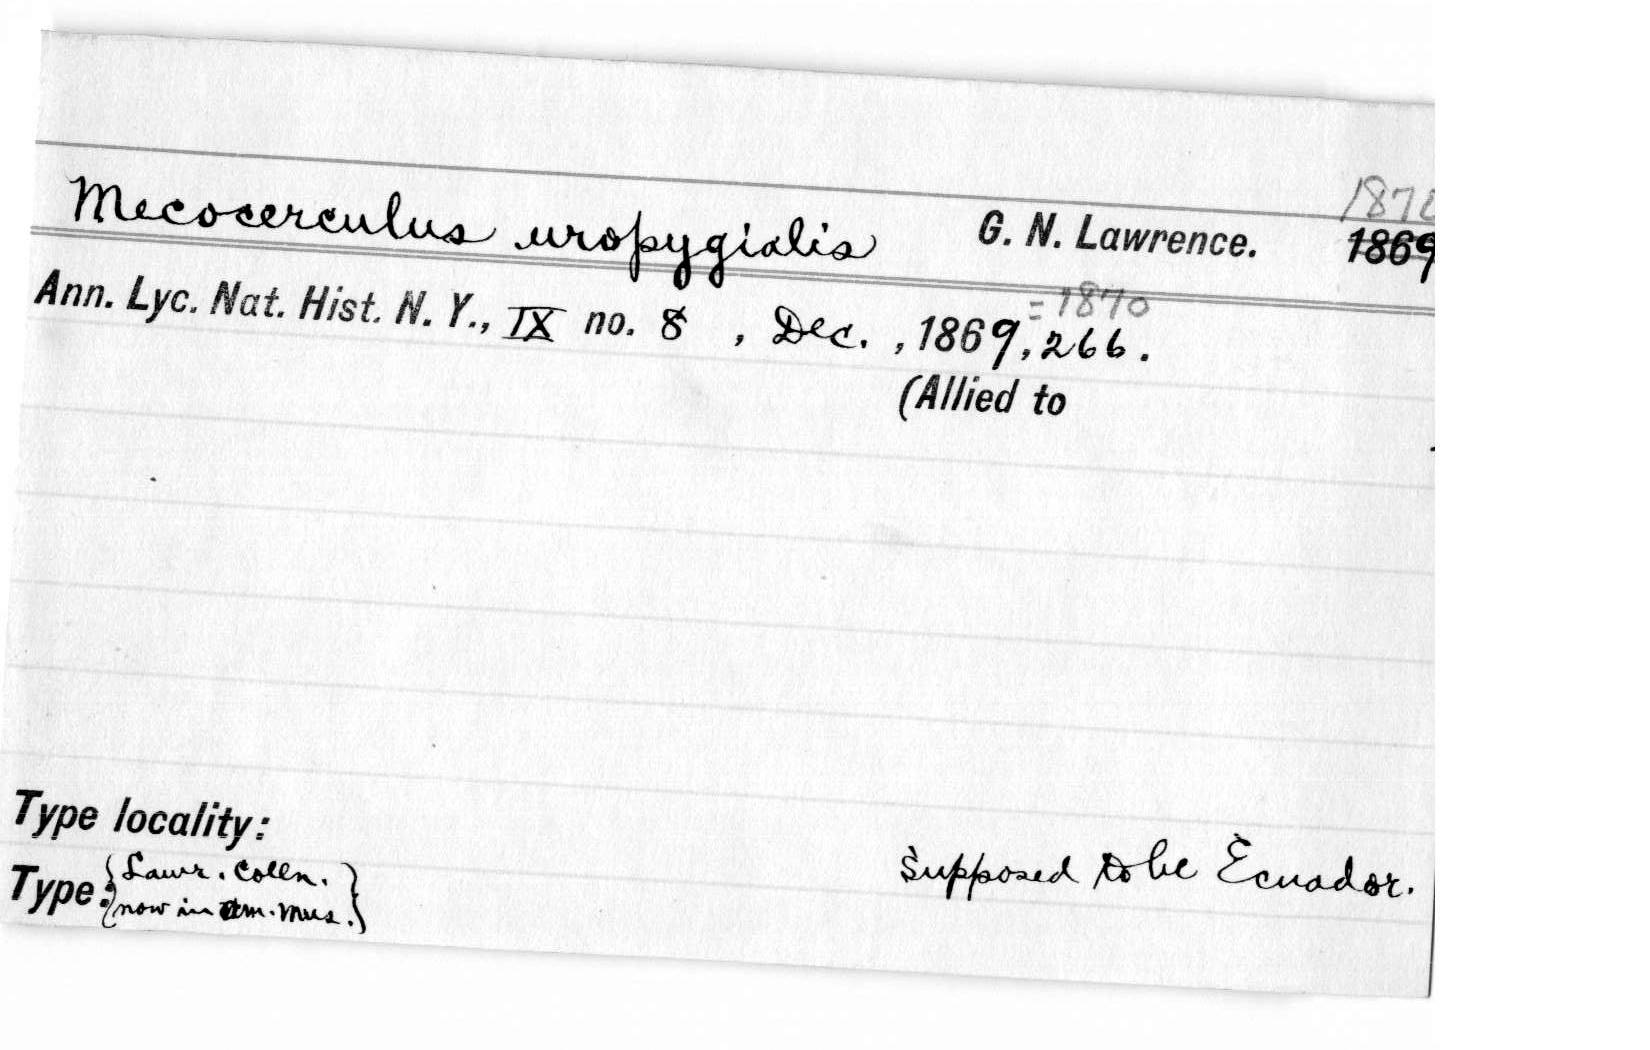 1870
Mecocerculus uropygialis G. N. Lawrence. 1869
= 1870
Ann. Lyc. Nat. Hist. N. Y., IX no. 8 , Dec. , 1869, 266.
(Allied to
Type locality:
Supposed to be Ecuador.
Type: {Lawr. Colln.
now in Am. Mus.}